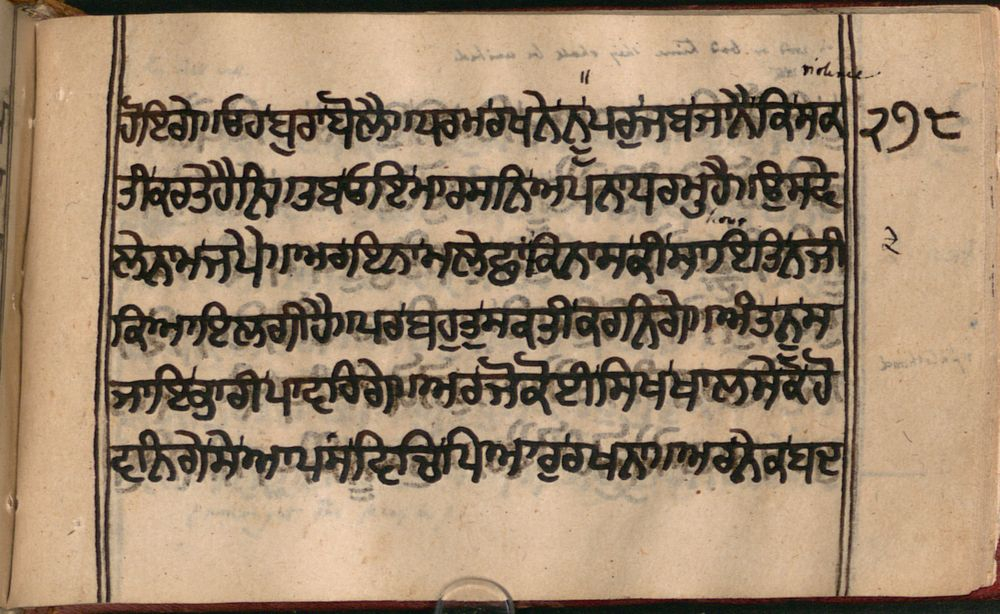 violence
॥
ਹੋਇਗੇ ॥ ਓਹ ਬੁਰਾ ਬੋਲੈ ॥ ਪਰਮਰਖਨੇਨੂੰ ਪਰੁ ਜਬ ਜਾਨੈ ਕਿ ਸਕ ੨੭੮
ਤੀ ਕਰਤੇ ਹੈਨਿ ॥ ਤਬ ਓਇ ਮਾਰਸਨਿ ਅਪਨਾ ਪਰਮੁ ਹੈ ॥ ਉਸਦੇ
ਲੇ ਨਾਮ ਜਪੇ ॥ ਅਗਇ ਨਾਮਲੇਛਾ ਕਿ ਨਾਸ ਕੀਸਾ ਇਤਿਨ ਜੀ ੨
ਕਿ ਆਇ ਲਗੀ ਹੈ ॥ ਪਰ ਬਹੁਤੁ ਸਕਤੀ ਕਰਨਿਗੇ ॥ ਅੰਤ ਨੂੰ ਸ
ਜਾਇ ਭਾਰੀ ਪਾਵਹਿਗੇ ॥ ਅਰ ਜੋ ਕੋਈ ਸਿਖ ਖਾਲਸੇ ਕੋ ਹੋ
ਵਨਿਗੇ ਸੇ ਆਪਸ ਵਿਚਿ ਪਿਆਰੁ ਰਖਨਾ ॥ ਅਰ ਨੇਕ ਬਦ